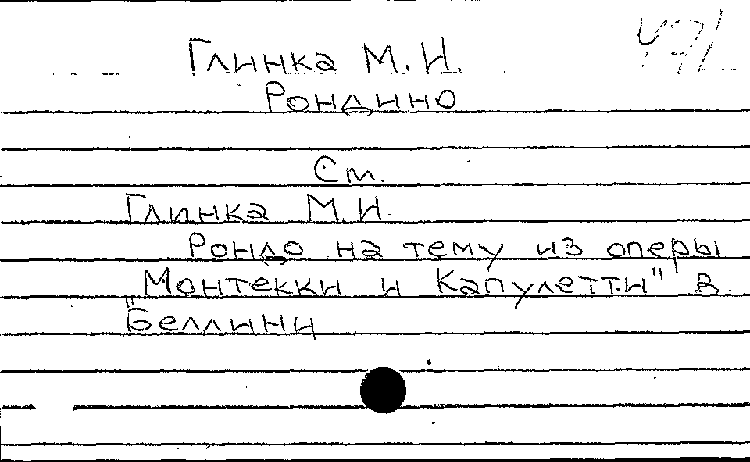 Глинка М. И.
Рондино
См.
Глинка М. И.
Рондо на тему из оперы
"Монтекки и Капулетти" В.
Беллини